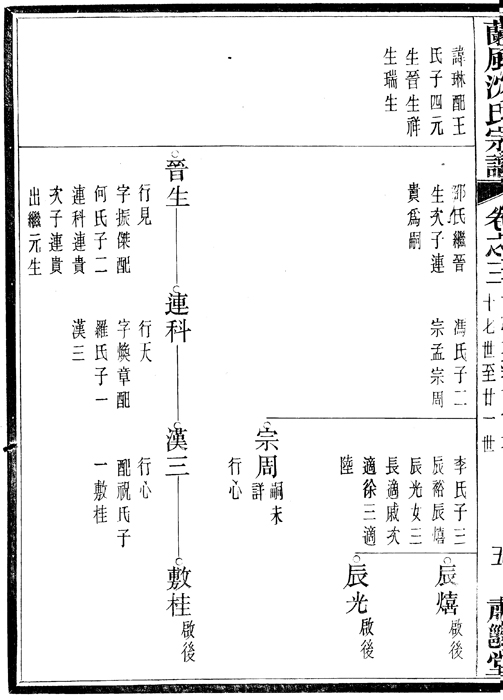 蘭風沈氏宗譜
卷之三
十七世至廿一世
五
肅雝堂
諱琳配王
氏子四元
生晉生祥
生瑞生
鄒氏繼晉
生次子連
貴爲嗣
馮氏子二
宗孟宗周
李氏子三
辰裕辰熺
辰光女三
長適戚次
適徐三適
陸
辰熺
啟後
辰光
啟後
宗周
嗣未
詳
行心
晉生
行見
字振傑配
何氏子二
連科連貴
次子連貴
出繼元生
連科
行大
字煥章配
羅氏子一
漢三
漢三
行心
配祝氏子
一敷桂
敷桂
啟後